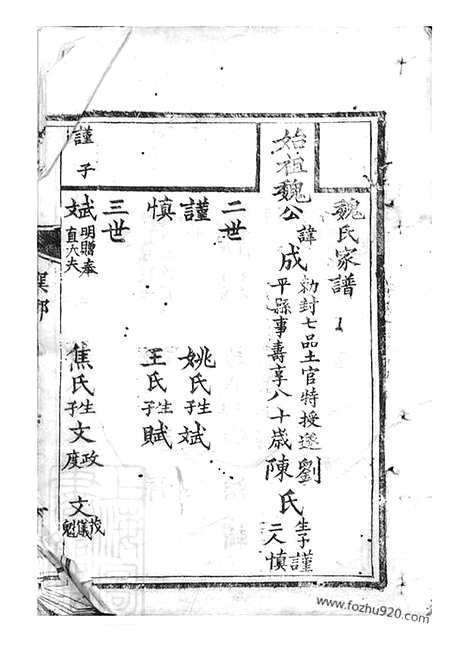 魏氏家譜
始祖魏公諱成勅封七品土官特授遂平縣事壽享八十歲劉陳氏生子二人謹慎
二世
謹 姚氏生子斌
慎 王氏生子賦
三世
謹子
斌明贈奉直大夫 焦氏生子文政文度文茂文儀文魁
www.fozhu920.com